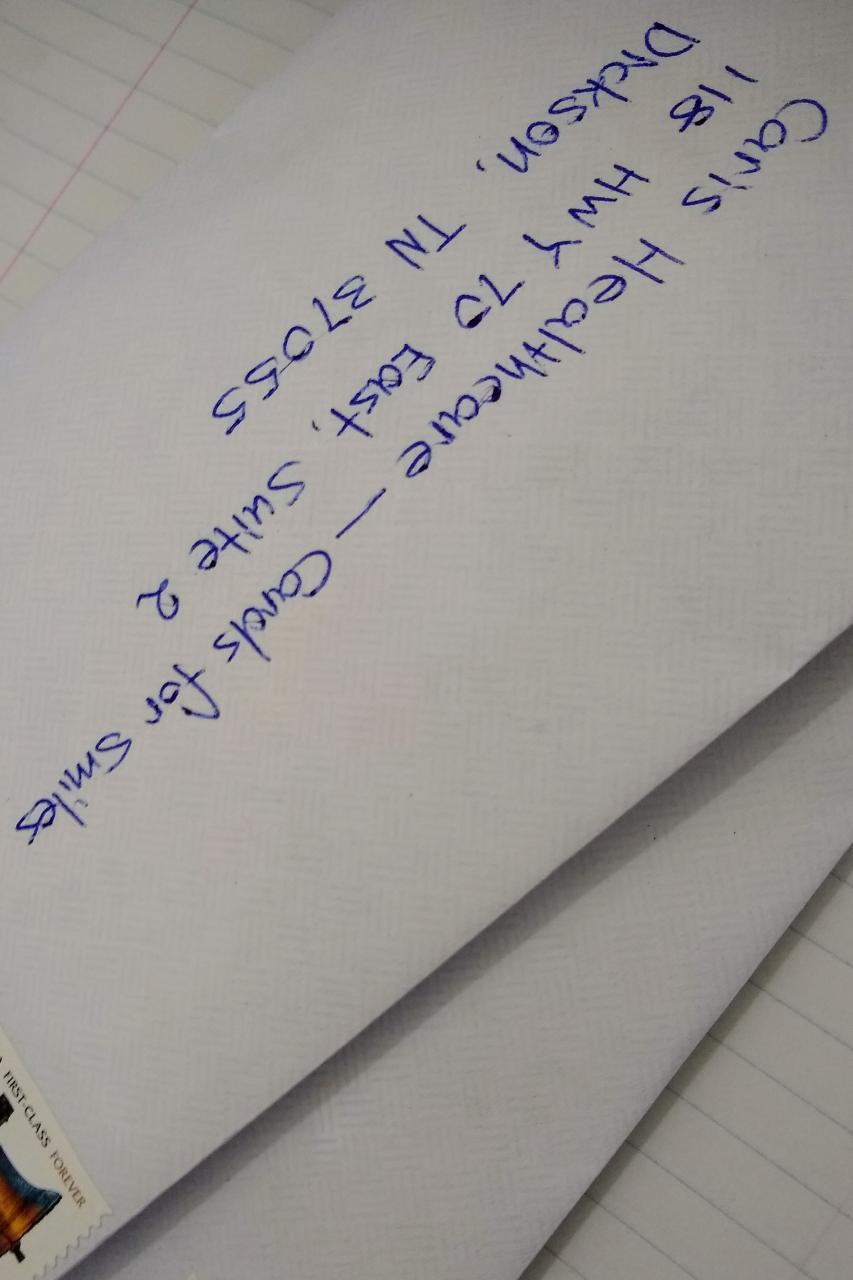 Caris Healthcare – Cards for Smiles
118 HWY 70 East, Suite 2
Dickson, TN 37055
FIRST-CLASS FOREVER